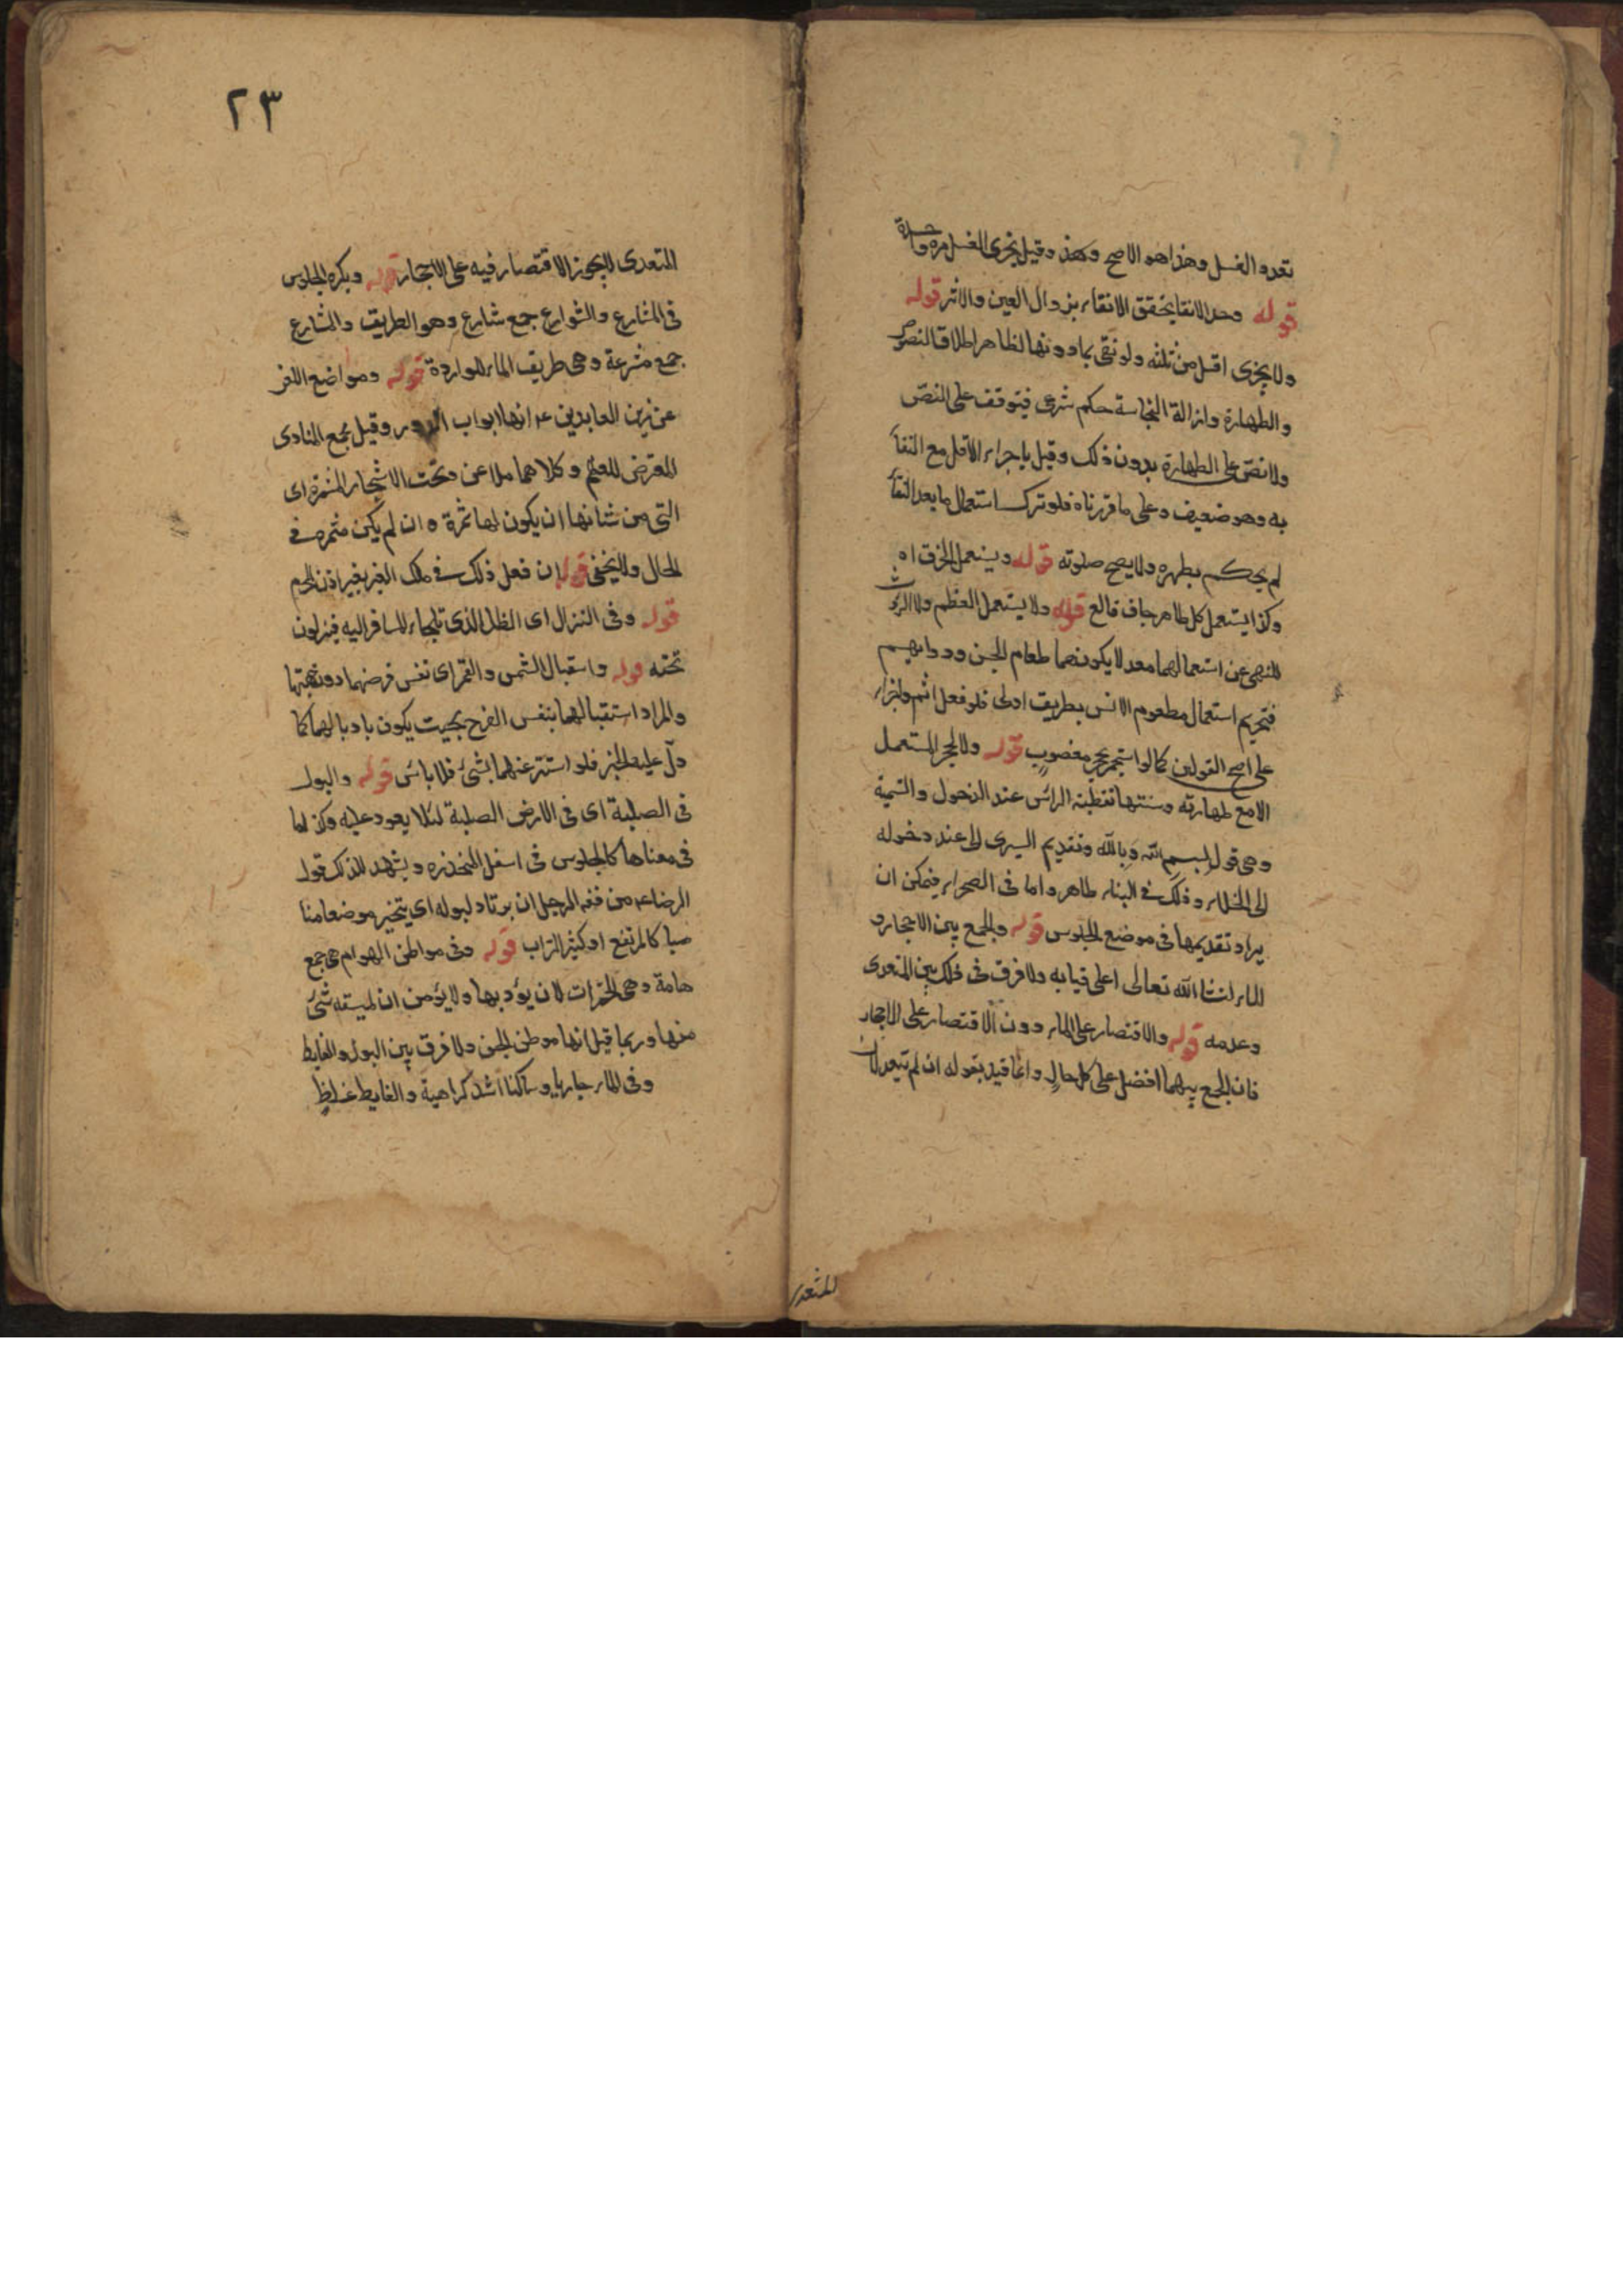 تعدد الغسل وهذا هو الاصح وكهذ وقيل يجزى الغسل مرة واحدة
قوله وحد الانقا يتحقق الانقاء بزوال العين والاثر قوله
ولا يجزى اقل من ثلثه ولو نقى بما دونها لظاهر اطلاق النصوص
والطهارة وازالة النجاسة حكم شرعى فيتوقف على النصّ
ولا نصّ على الطهارة بدون ذلك وقيل باجزاء الاقل مع النقآ
به وهو ضعيف وعلى ما قررناه فلو ترك استعمال ما بعد النقآ
لم يحكم بطهره ولا يصح صلوته قوله ويستعمل الخرق اه
وكذا يستعمل كل طاهر جاف قالع قوله ولا يستعمل العظم ولا الروث
للنهى عن استعمالهما معللا بكونهما طعام الجن ودوابهم
فتحريم استعمال مطعوم الانس بطريق اولى فلو فعل اثم واجزاء
على اصح القولين كما لو استجمر بحجر مغصوب قوله ولا الحجر المستعمل
الا مع طهارته وسننها تغطية الرائس عند الدخول والتسمية
وهى قول بسم الله وبالله وتقديم اليسرى اى عند دخوله
الى الخلاء وذلك فى البناء ظاهر واما فى الصحراء فيمكن ان
يراد تقديمها فى موضع الجلوس قوله والجمع بين الاحجار و
الماء لثنا الله تعالى اعلى قبا به ولا فرق فى ذلك بين المتعدى
وعدمه قوله والاقتصار على الماء دون الاقتصار على الاحجار
فان الجمع بينهما افضل على كل حال وانما قيد بقوله ان لم يتعد لان
المتعدى
٢٣
المتعدى لا يجوز الاقتصار فيه على الاحجار قوله ويكره الجلوس
فى المشارع والشوارع جمع شارع وهو الطريق والمشارع
جمع مشرعة وهى طريق الماء للواردة قوله ومواضع اللعن
عن زين العابدين ع انها ابواب الدور وقيل مجمع النادى
المعرض للعنهم وكلاهما ملاعن وتحت الاشجار المثمرة اى
التى من شانها ان يكون لها ثمرة وان لم يكن مثمره فى
الحال ولا يخفى قوله ان فعل ذلك فى ملك الغير بغير اذن لحرم
قوله وفى النزال اى الظل الذى يلجاء المسافر اليه فينزلون
تحته قوله واستقبال الشمس والقمر اى نفس قرصهما دون جهتهما
والمراد استقبالهما بنفس الفرج بحيث يكون باديا لهما كما
دلّ عليه الخبر فلو استتر عنهما بشئ فلا بائس قوله والبول
فى الصلبة اى فى الارض الصلبة لئلا يعود عليه وكذا ما
فى معناها كالجلوس فى اسفل المنحدره ويشهد للذلك قول
الرضا ع من فقه الرجل ان يرتاد لبوله اى يتخير موضعا منا
صبا كالمرتفع او كثير التراب قوله وفى مواطن الهوام هى جمع
هامة وهى الحشرات لان يؤديها ولا يؤمن ان لميسقه شئ
منها وربما قيل انها موطن الجن ولا فرق بين البول والغايط
وفى الماء جاريا وساكنا اشد كراهية والغايط غليظ